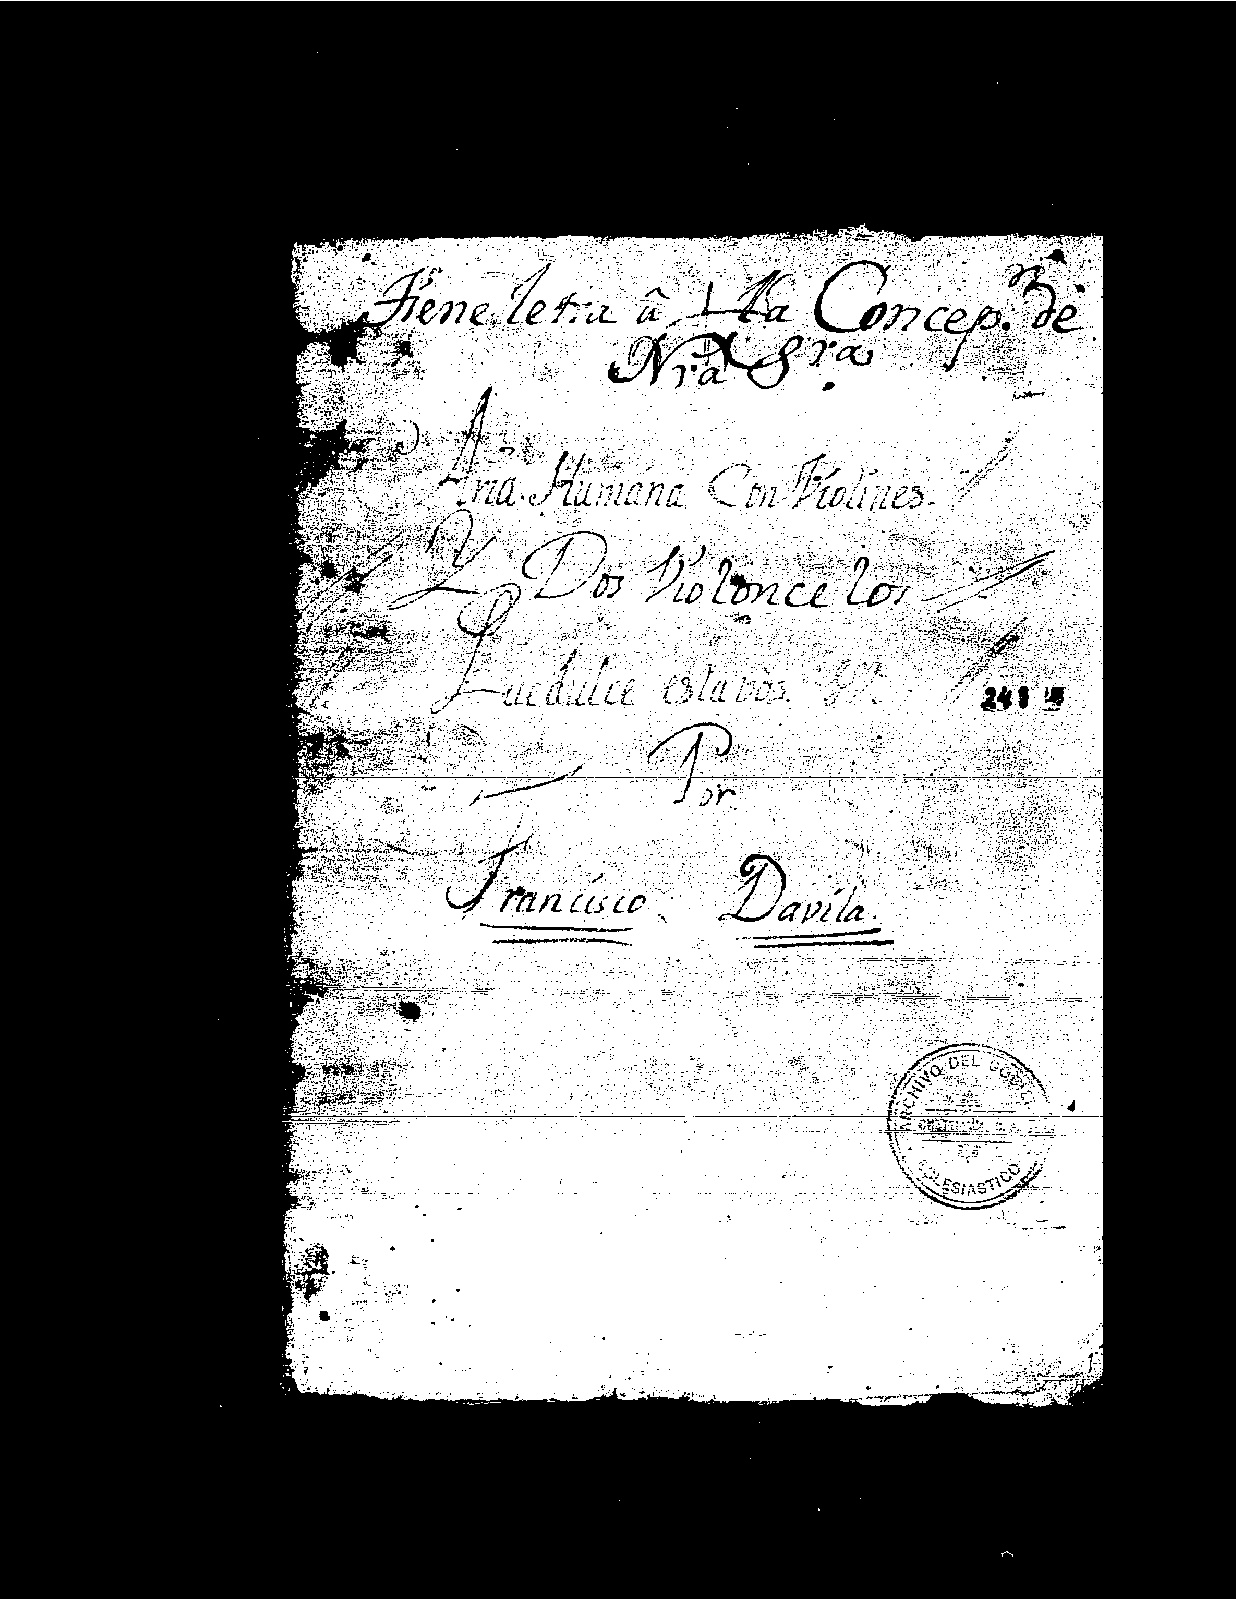 Tiene letra â La Concep.n de
Nra Sra
Aria Humana Con Violines.
Y Dos Violoncelos
Que dulce esla vôs.
Por
Francisco Davila.
ARCHIVO DEL
ECLESIASTICO